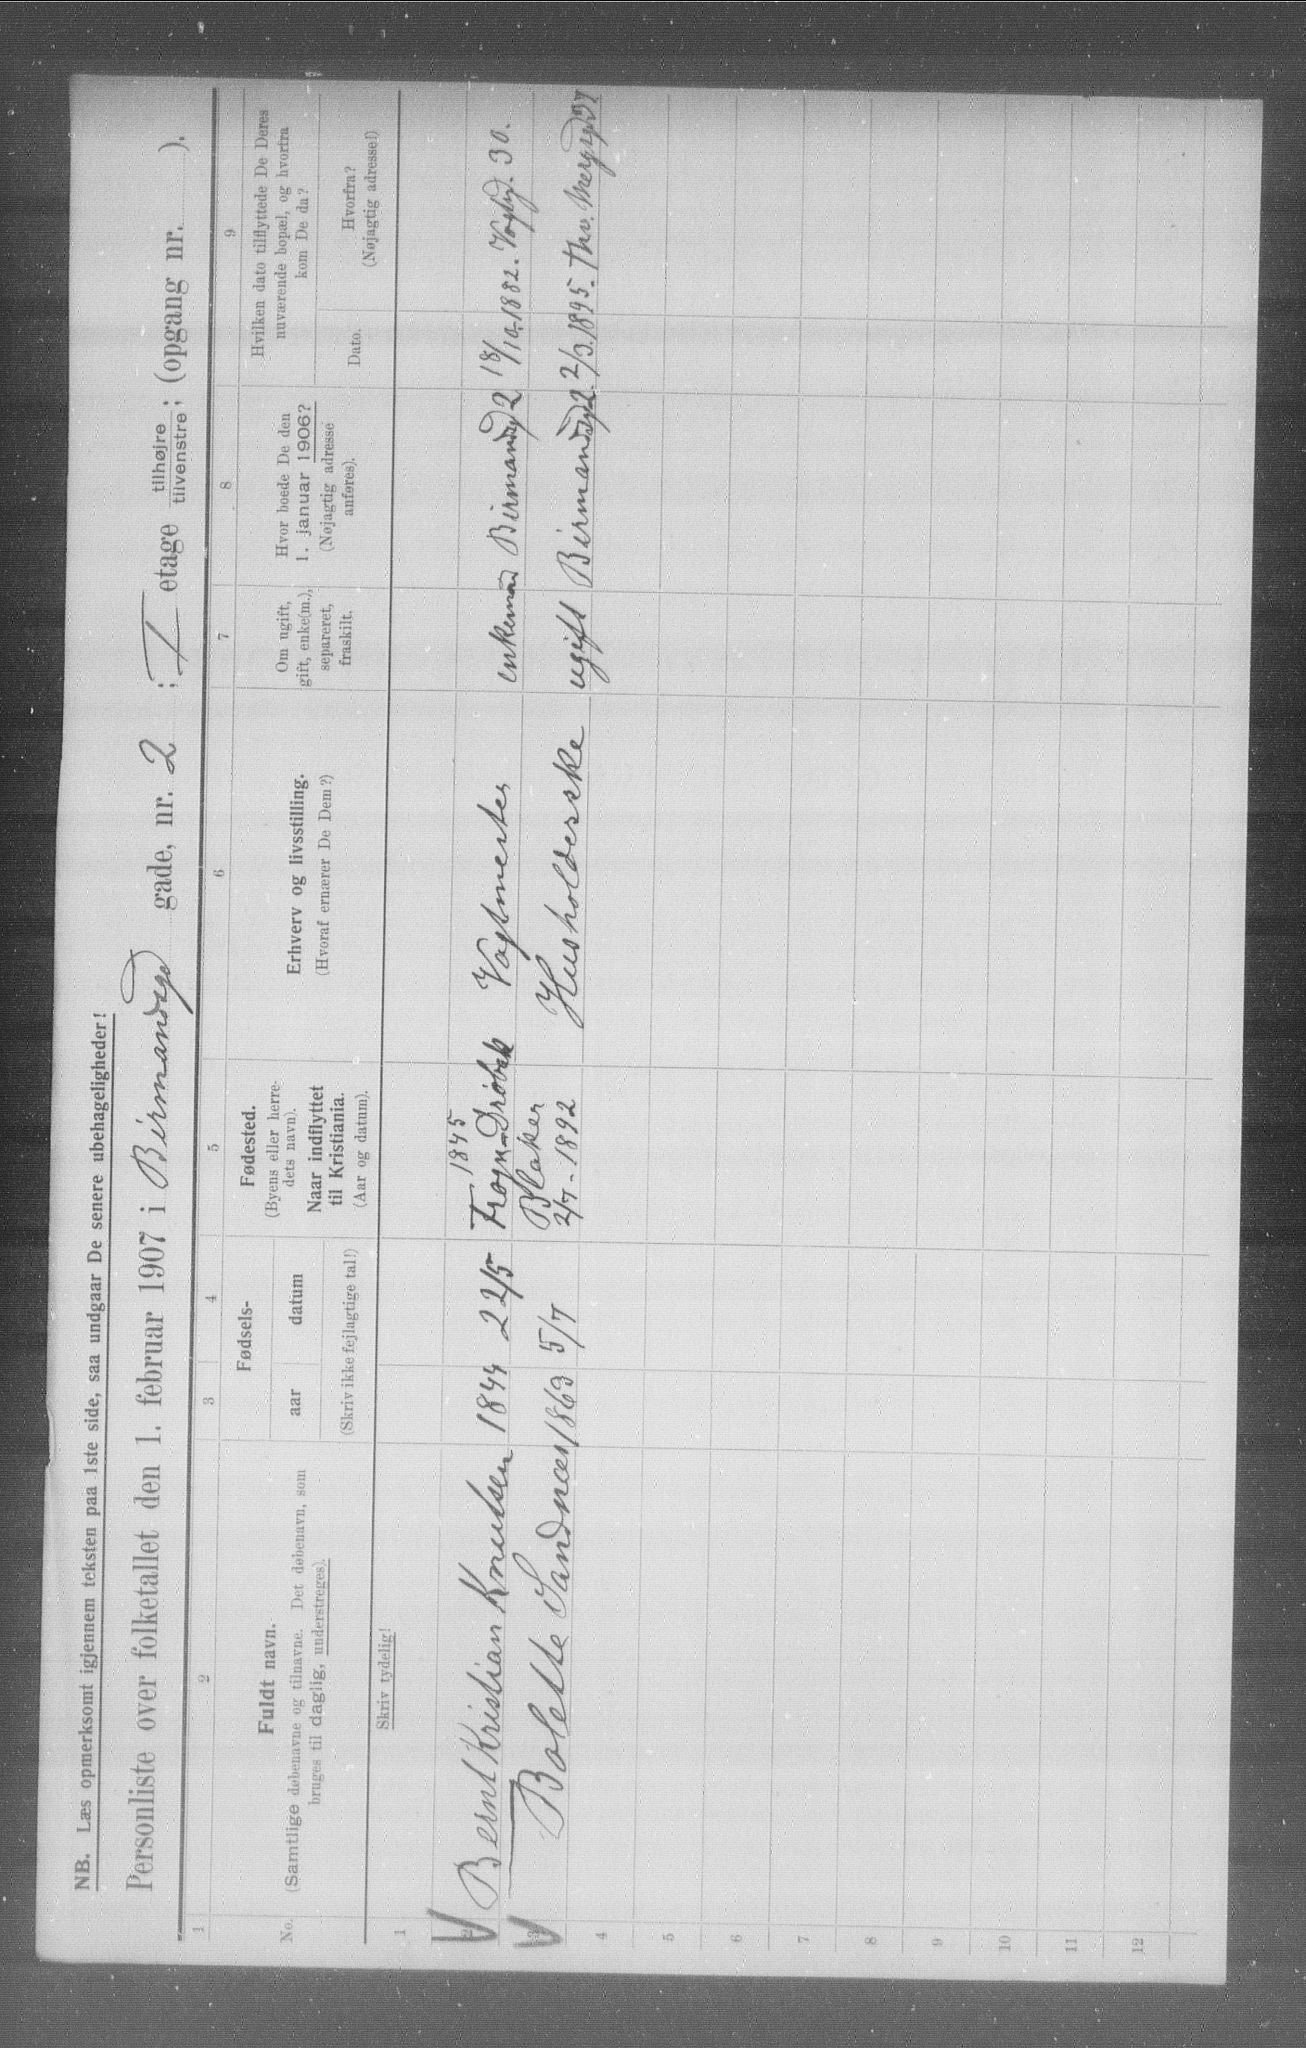 NB. Læs opmerksomt igjennem teksten paa 1ste side, saa undgaar De senere ubehageligheder!
Personliste over folketallet den 1. februar 1907 i Birmandsgd gade, nr. 2 ; I etage tilhøjre tilvenstre ; (opgang nr. ).
1 2 3 4 5 6 7 8 9
No.
Fuldt navn.
(Samtlige døbenavne og tilnavne. Det døbenavn, som
bruges til daglig, understreges).
Skriv tydelig!
Fødsels-
aar datum
(Skriv ikke fejlagtige tal!)
Fødested.
(Byens eller herre-
dets navn).
Naar indflyttet
til Kristiania.
(Aar og datum).
Erhverv og livsstilling.
(Hvoraf ernærer De Dem?)
Om ugift,
gift, enke(m.),
separeret,
fraskilt.
Hvor boede De den
1. januar 1906?
(Nøjagtig adresse
anføres).
Hvilken dato tilflyttede De Deres
nuværende bopæl, og hvorfra
kom De da?
Dato.
Hvorfra?
(Nøjagtig adresse!)
1
1845
2 Bernt Kristian Knutsen 1844 22/5 Frogn-Drøbak Vogtmester enkemand Birmandsgd 2 18/10.1882. Vogtgd. 30.
3 Bolette Sandnæs 1863 5/7 Blaker Husholderske ugift Birmandsgd 2. 2/3.1895. Thv. Meyersgd 37
2/7-1892
4
5
6
7
8
9
10
11
12